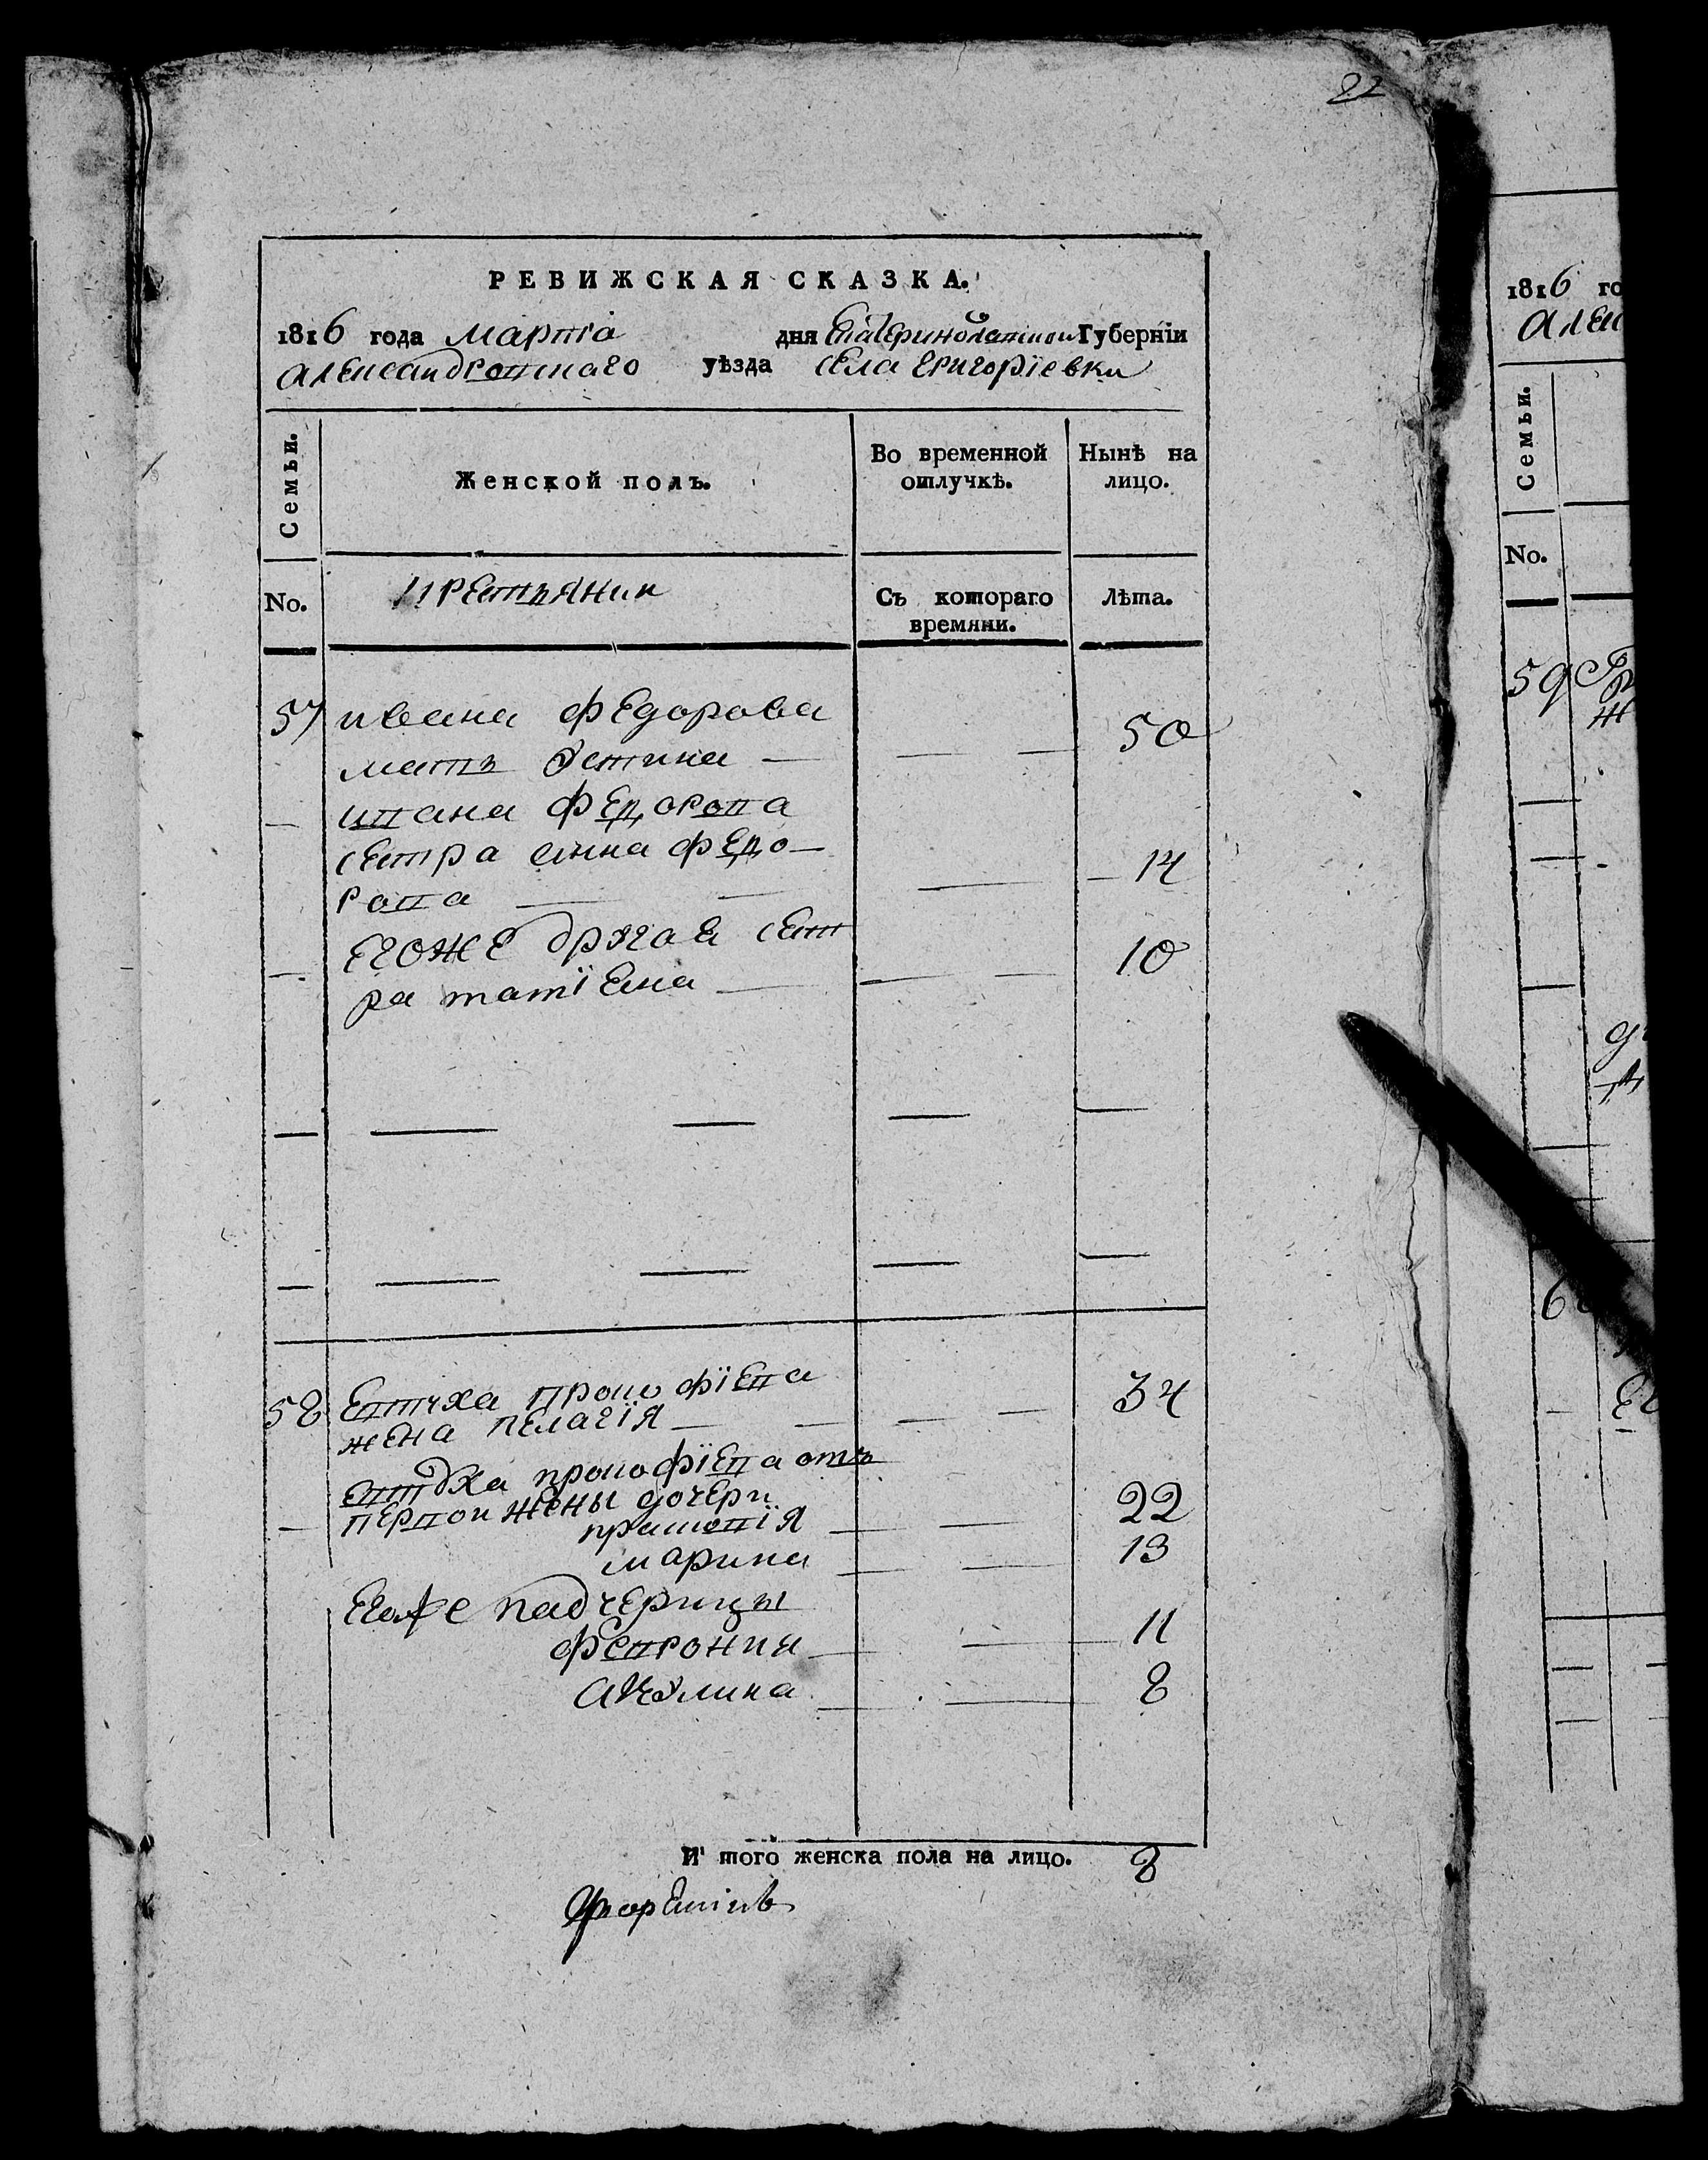 22
РЕВИЖСКАЯ СКАЗКА.
1816 года марта дня Екатеринославской Губерніи
александровскаго уѣзда села григоріевки
Семьи.
Женской полъ.
Во временной отлучкѣ.
Нынѣ на лицо.
No.
крестьянии
Съ котораго времяни.
Лѣта.
57 ивана федорова
мать Устина — 50
ивана федорова
сестра анна федо—
рова — 14
егоже другая сест
ра татіана — 10
58 Евтуха прокофіева
жена пелагія — 34
евтуха прокофіева отъ
первои жены дочери
прасковія 22
марина 13
Егоже падчерицы
феврониа 11
акулина 8
И того женска пола на лицо. 8
1816 го
алек
Семьи.
No.
59 Гр
ж